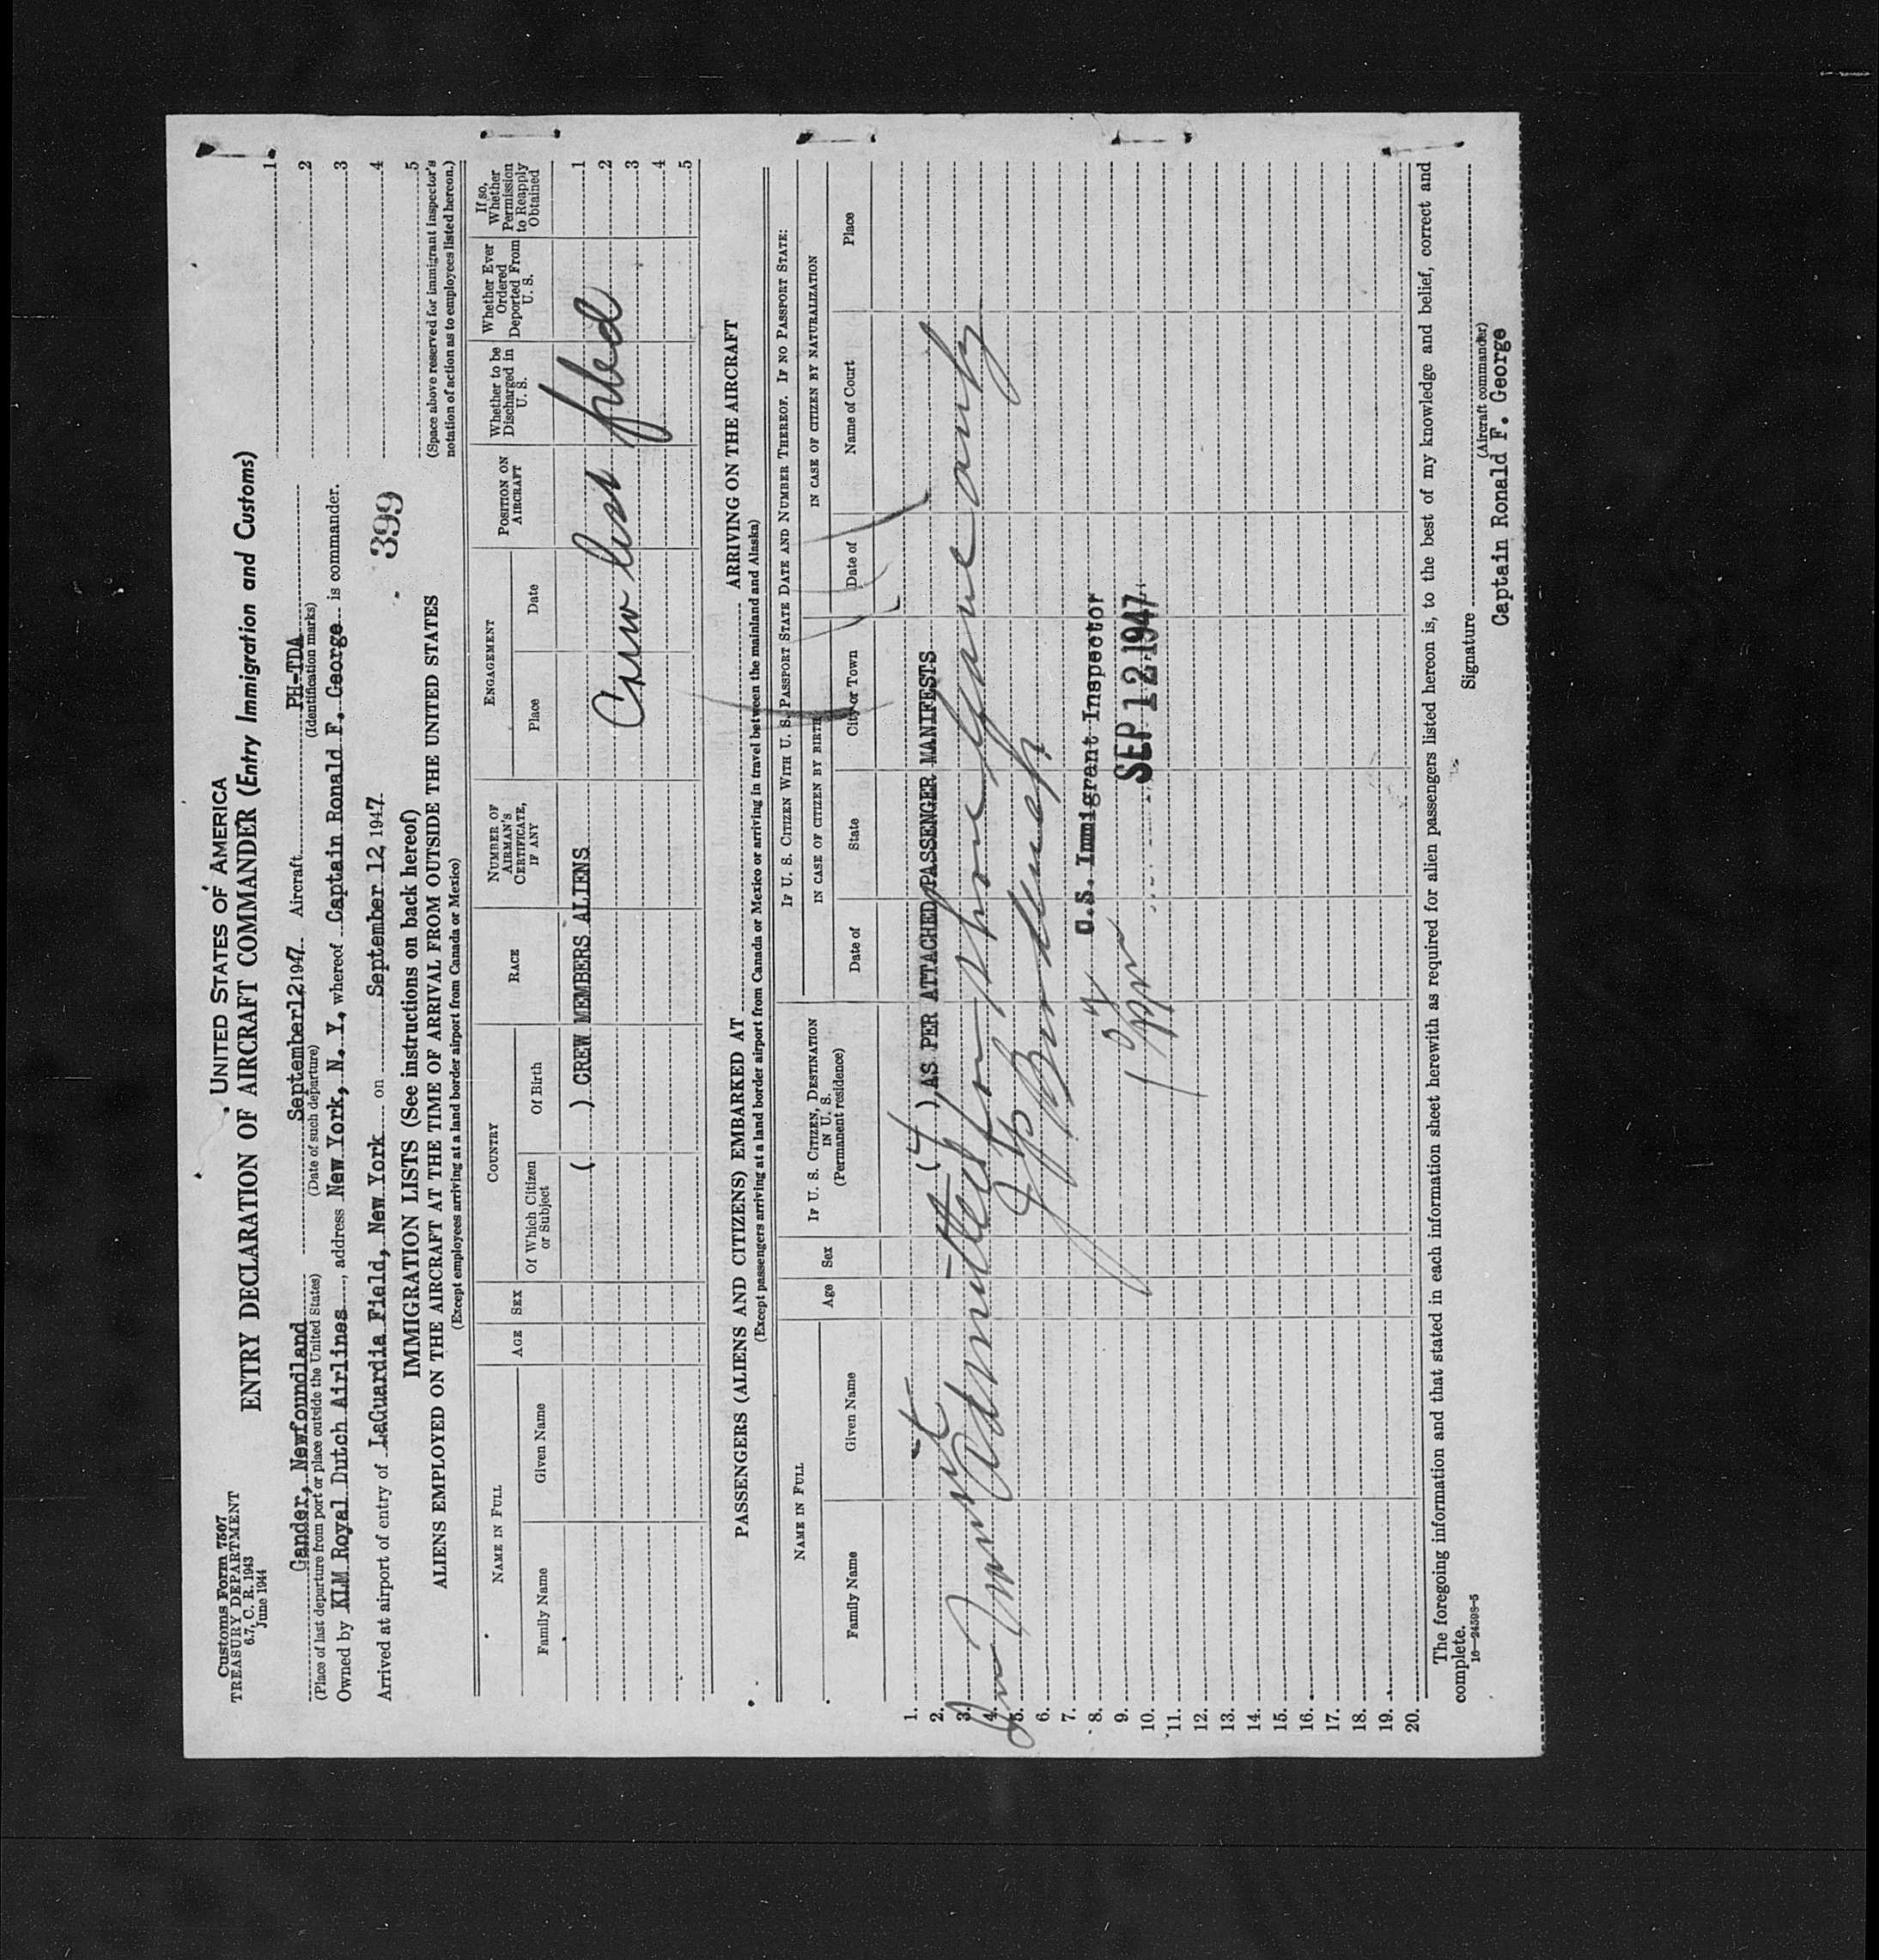 Customs Form 7507
TREASURY DEPARTMENT
6.7, C. R. 1943
June 1944
UNITED STATES OF AMERICA
ENTRY DECLARATION OF AIRCRAFT COMMANDER (Entry Immigration and Customs)
Gander, Newfoundland September121947 Aircraft PH-TDA
(Place of last departure from port or place outside the United States) (Date of such departure) (Identification marks)
Owned by KLM Royal Dutch Airlines, address New York, N. Y., whereof Captain Ronald F. George is commander.
Arrived at airport of entry of LaGuardia Field, New York on September 12, 1947
399
1
2
3
4
5
(Space above reserved for immigrant inspector's
notation of action as to employees listed hereon.)
IMMIGRATION LISTS (See instructions on back hereof)
ALIENS EMPLOYED ON THE AIRCRAFT AT THE TIME OF ARRIVAL FROM OUTSIDE THE UNITED STATES
(Except employees arriving at a land border airport from Canada or Mexico)
NAME IN FULL
Family Name Given Name
AGE
SEX
COUNTRY
Of Which Citizen or Subject
Of Birth
RACE
NUMBER OF AIRMAN'S CERTIFICATE, IF ANY
ENGAGEMENT
Place Date
POSITION ON AIRCRAFT
Whether to be Discharged in U. S.
Whether Ever Ordered Deported From U. S.
If so, Whether Permission to Reapply Obtained
( ) CREW MEMBERS ALIENS
Crew list filed
1
2
3
4
5
PASSENGERS (ALIENS AND CITIZENS) EMBARKED AT ARRIVING ON THE AIRCRAFT
(Except passengers arriving at a land border airport from Canada or Mexico or arriving in travel between the mainland and Alaska)
NAME IN FULL
Family Name Given Name
Age
Sex
IF U. S. CITIZEN, DESTINATION IN U. S.
(Permanent residence)
IF U. S. CITIZEN WITH U. S. PASSPORT STATE DATE AND NUMBER THEREOF. IF NO PASSPORT STATE:
IN CASE OF CITIZEN BY BIRTH
Date of State City or Town
IN CASE OF CITIZEN BY NATURALIZATION
Date of Name of Court Place
1.
2. (4) AS PER ATTACHED PASSENGER MANIFESTS
3.
4.
admitted
5.
6.
7.
8. U.S. Immigrant Inspector
9.
10. SEP 12 1947
11.
12.
13.
14.
15.
16.
17.
18.
19.
20.
The foregoing information and that stated in each information sheet herewith as required for alien passengers listed hereon is, to the best of my knowledge and belief, correct and
complete.
16—24508-5
Signature
(Aircraft commander)
Captain Ronald F. George